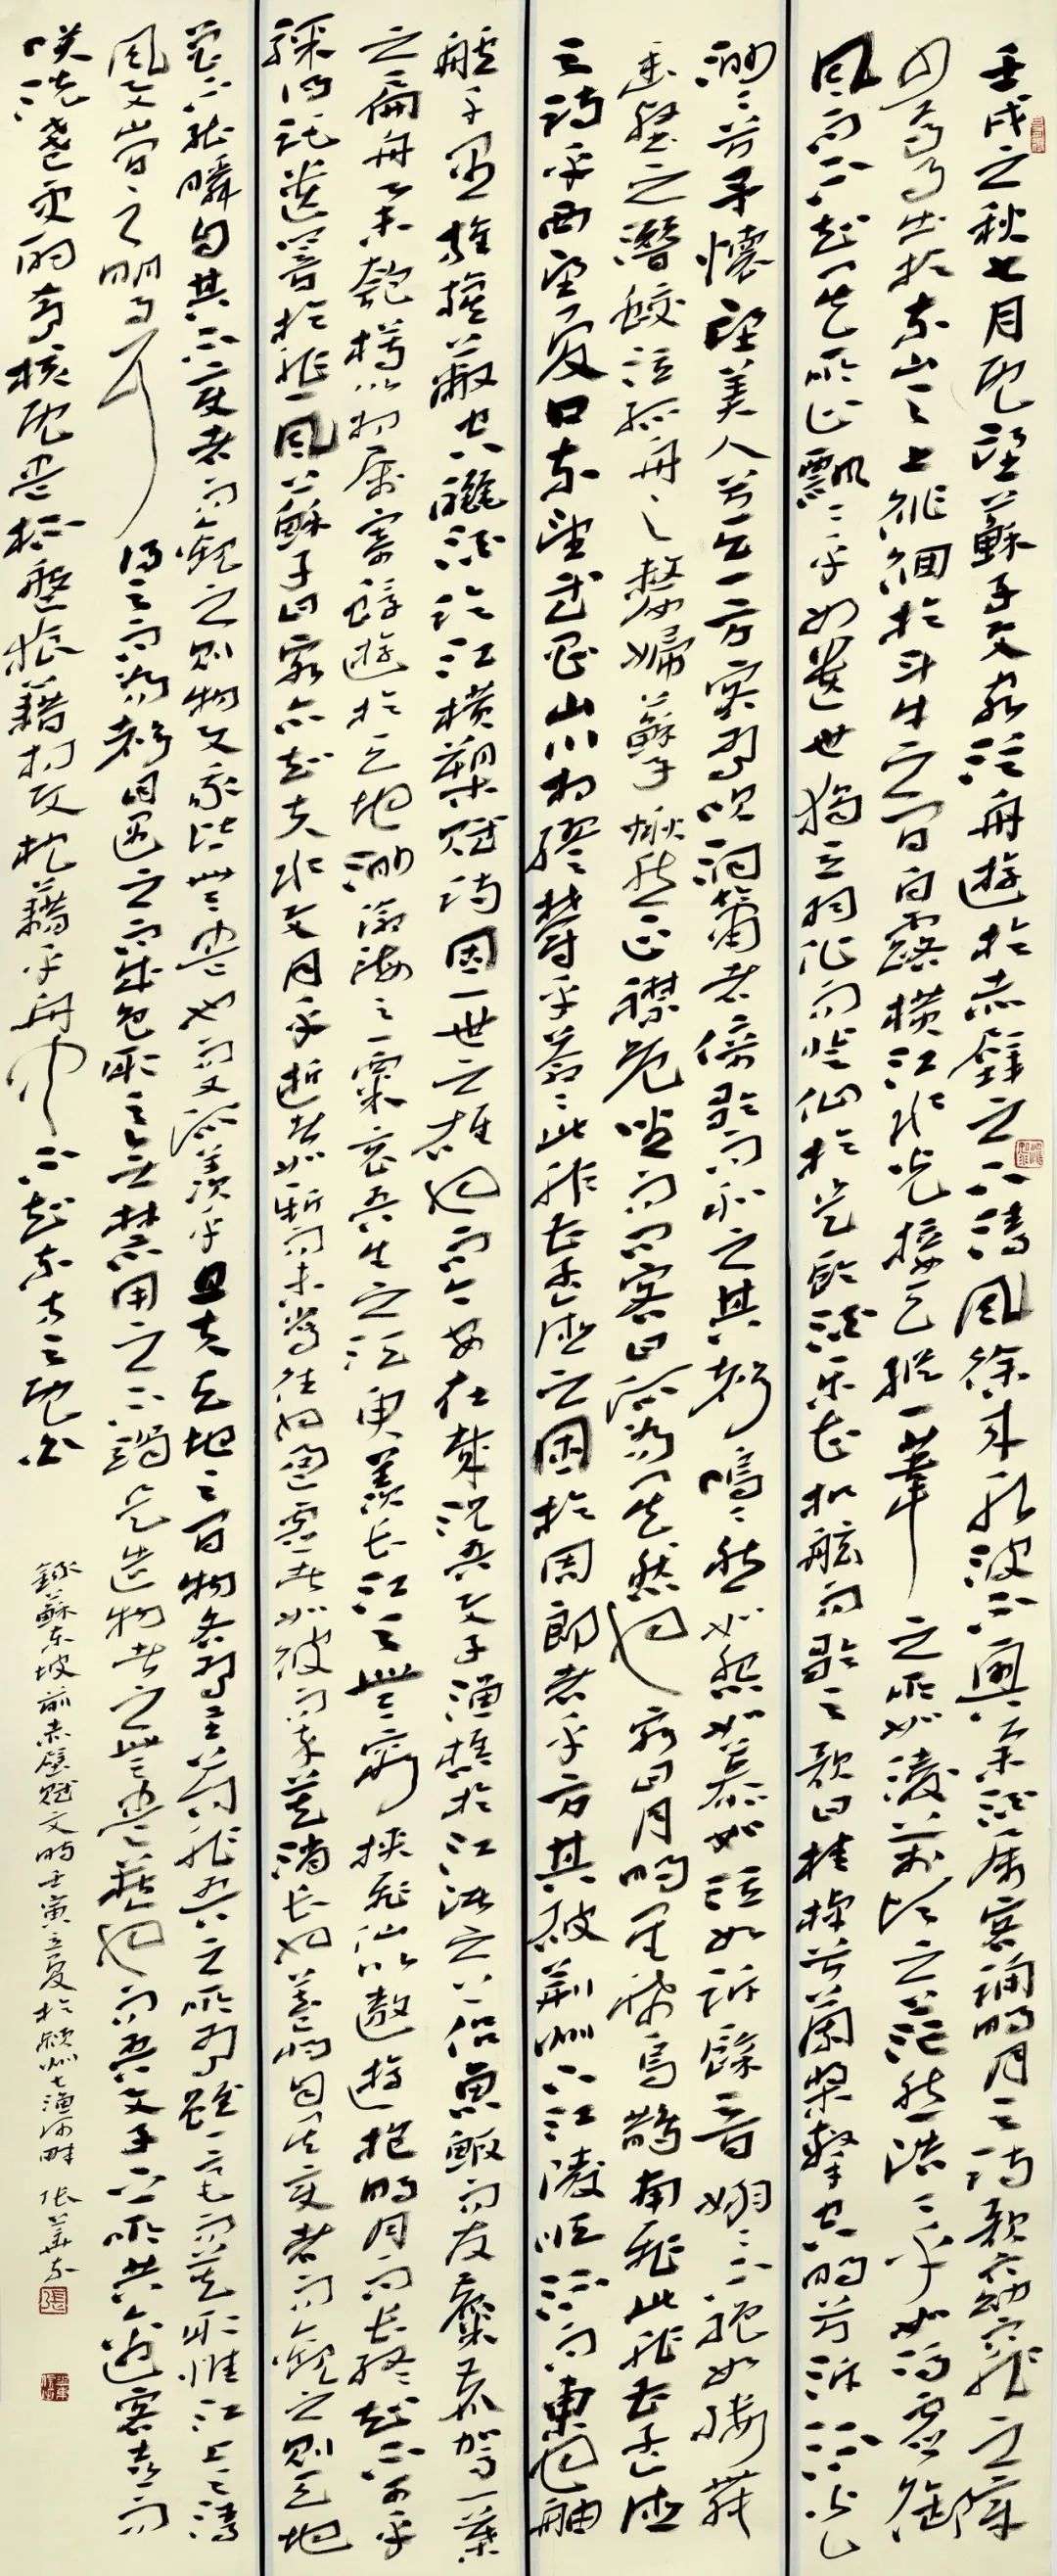 壬戌之秋七月既望蘇子與客泛舟遊於赤壁之下清風徐來水波不興舉酒屬客誦明月之詩歌窈窕之章
少焉月出於東山之上徘徊於斗牛之間白露橫江水光接天縱一葦之所如凌萬頃之茫然浩浩乎如馮虛御
風而不知其所止飄飄乎如遺世獨立羽化而登仙於是飲酒樂甚扣舷而歌之歌曰桂棹兮蘭槳擊空明兮泝流光
渺渺兮予懷望美人兮天一方客有吹洞簫者倚歌而和之其聲嗚嗚然如怨如慕如泣如訴餘音嫋嫋不絕如縷舞
幽壑之潛蛟泣孤舟之嫠婦蘇子愀然正襟危坐而問客曰何為其然也客曰月明星稀烏鵲南飛此非曹孟德
之詩乎西望夏口東望武昌山川相繆鬱乎蒼蒼此非曹孟德之困於周郎者乎方其破荊州下江陵順流而東也舳
艫千里旌旗蔽空釃酒臨江橫槊賦詩固一世之雄也而今安在哉況吾與子漁樵於江渚之上侶魚蝦而友麋鹿駕一葉
之扁舟舉匏樽以相屬寄蜉蝣於天地渺滄海之一粟哀吾生之須臾羨長江之無窮挾飛仙以遨遊抱明月而長終知不可乎
驟得託遺響於悲風蘇子曰客亦知夫水與月乎逝者如斯而未嘗往也盈虛者如彼而卒莫消長也蓋將自其變者而觀之則天地
曾不能瞬自其不變者而觀之則物與我皆無盡也而又何羨乎且夫天地之間物各有主苟非吾之所有雖一毫而莫取惟江上之清
風與山間之明月耳得之而為聲目遇之而成色取之無禁用之不竭是造物者之無盡藏也而吾與子之所共適客喜而
笑洗盞更酌肴核既盡杯盤狼藉相與枕藉乎舟中不知東方之既白
錄蘇東坡前赤壁賦文時壬寅立夏於潁州七漁河畔 張華東